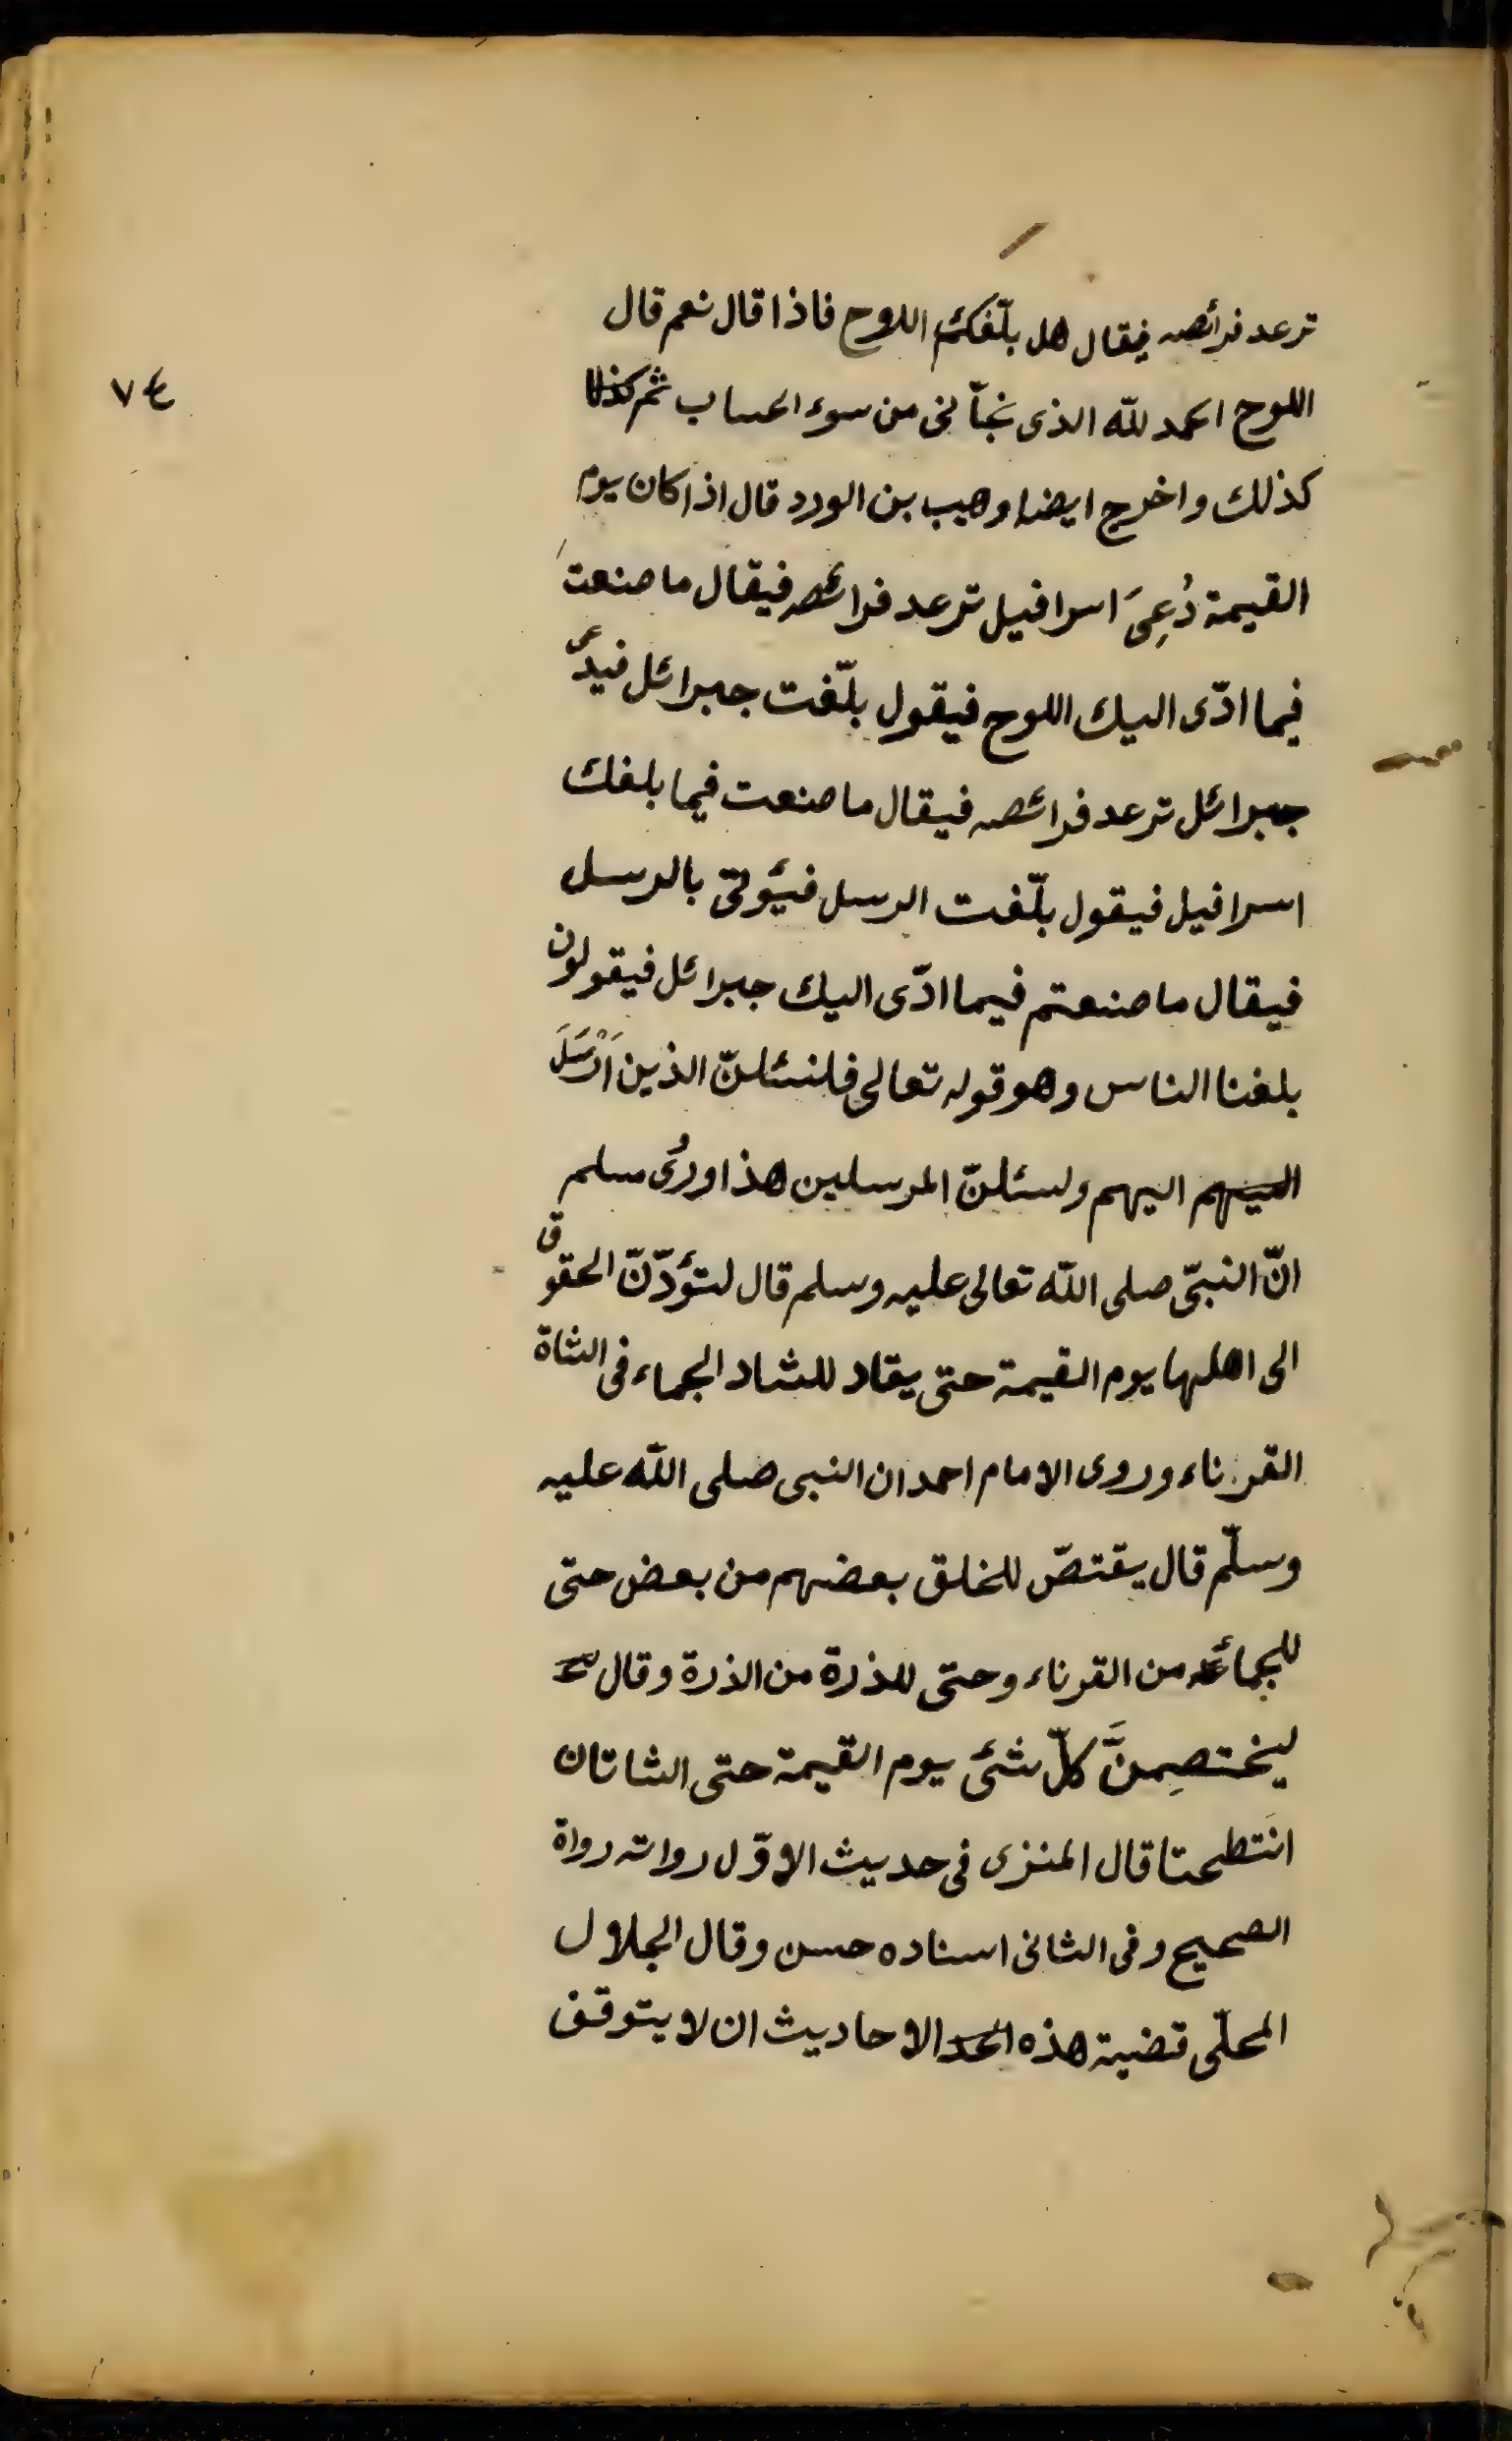 ترعد فرائصه فيقال هل بلّغك اللوح فاذا قال نعم قال
اللوح الحمد لله الذى نجّانى من سوء الحساب ثم كذلك
٧٤
كذلك واخرج ايضا وهيب بن الورد قال اذا كان يوم
القيمة دُعِىَ اسرافيل ترعد فرائصه فيقال ما صنعت
فيما ادّى اليك اللوح فيقول بلّغت جبرائل فيدعى
جبرائل ترعد فرائصه فيقال ما صنعت فيما بلغك
اسرافيل فيقول بلّغت الرسل فيئوتى بالرسل
فيقال ما صنعتم فيما ادّى اليك جبرائل فيقولون
بلغنا الناس وهو قوله تعالى فلنسئلنّ الذين اَرْسَلَ
اليهم اليهم ولسئلنّ المرسلين هذا وروُى مسلم
انّ النبىّ صلى الله تعالى عليه وسلم قال لتؤدّنّ الحقوق
الى اهلها يوم القيمة حتى يقاد للشاد الجماء فى الشاة
القرناء وروى الامام احمد ان النبى صلى الله عليه
وسلّم قال يقتصّ للخلق بعضهم من بعض حتى
للجمائه من القرناء وحتى للذرة من الذرة وقال
ليختصِمنَّ كلّ شئ يوم القيمة حتى الشاتان
انتَطحتا قال المنزى فى حديث الاوّل رواته رواة
الصحيح وفى الثانى اسناده حسن وقال الجلال
المحلّى قضية هذه الحد الاحاديث ان لا يتوقف